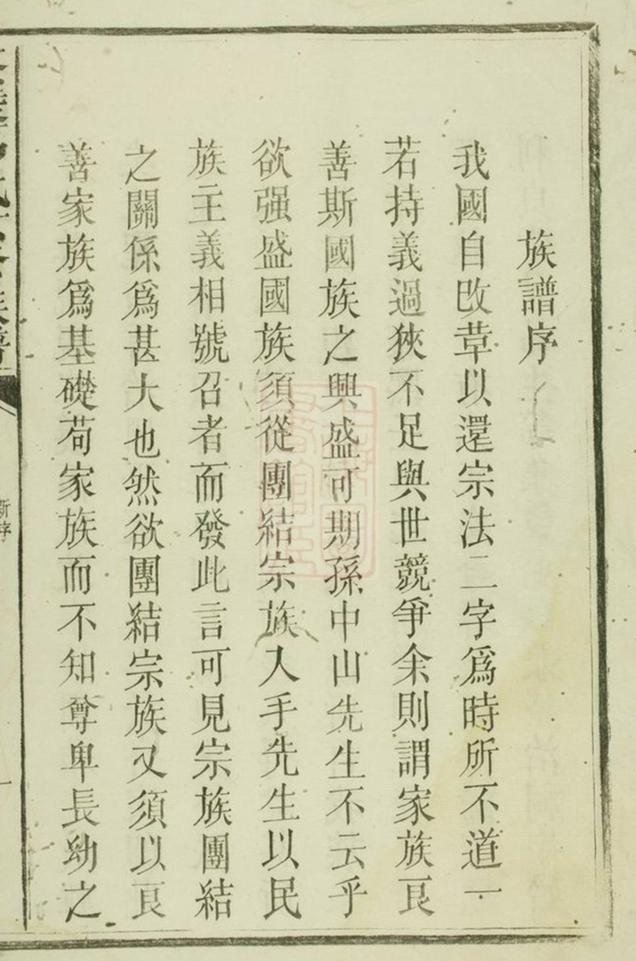 族譜序
我國自改革以還宗法二字爲時所不道一
若持義過狹不足與世競爭余則謂家族良
善斯國族之興盛可期孫中山先生不云乎
欲强盛國族須從團結宗族入手先生以民
族主義相號召者而發此言可見宗族團結
之關係爲甚大也然欲團結宗族又須以良
善家族爲基礎苟家族而不知尊卑長幼之
新序